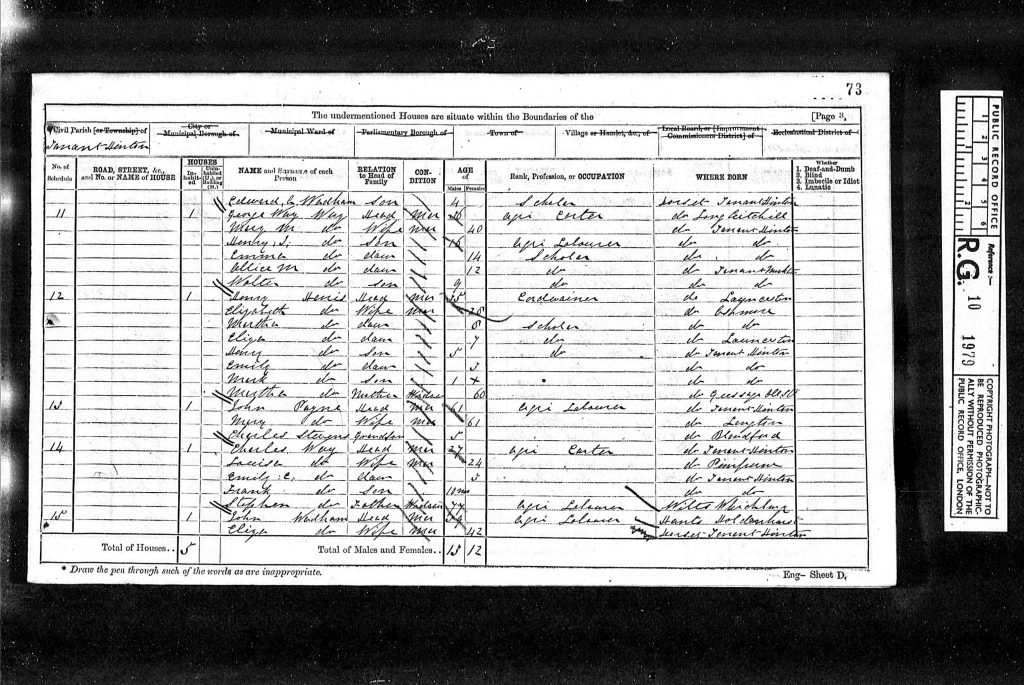 73
The undermentioned Houses are situate within the Boundaries of the [Page 3,
Civil Parish [or Township] of City or Municipal Borough of Municipal Ward of Parliamentary Borough of Town of Village or Hamlet, &c., of Local Board, or [Improvement Commissioners District] of Ecclesiastical District of
Tarrant Hinton
No. of Schedule ROAD, STREET, &c., and No. or NAME of HOUSE HOUSES Inhabited Uninhabited (U.), or Building (B.) NAME and Surname of each Person RELATION to Head of Family CONDITION AGE of Males Females Rank, Profession, or OCCUPATION WHERE BORN Whether 1. Deaf-and-Dumb 2. Blind 3. Imbecile or Idiot 4. Lunatic
Edward Wadham Son 4 Scholar Dorset Tarrant Hinton
11 1 George Way Way Head Mar Agri Carter do Long Critchill
Mary M do Wife Mar 40 do Tarrant Hinton
Henry do Son 16 Agri Labourer do do
Emma do daur 14 Scholar do do
Allice M do daur 12 do do Tarrant
Walter do Son 9 do do do
12 1 Henry Head Mar 35 Cordwainer do Launceston
Elizabeth do Wife Mar do Ashmore
Martha do daur 8 Scholar do do
Eliza do daur 7 do do Launceston
Henry do Son 5 do do Tarrant Hinton
Emily do daur 3 do do
Mark do Son 1 do do
Martha do Mother Widow 60 do Gussage
13 1 John Payne Head Mar 61 Agri Labourer do Tarrant Hinton
Mary do Wife Mar 61 do Langton
Charles Stevens Grandson 5 do Blandford
14 1 Charles Way Head Mar 27 Agri Carter do Tarrant Hinton
Louisa do Wife Mar 24 do Pimperne
Emily C. do daur 3 do Tarrant Hinton
Frank do Son 10 mo do do
Stephen do Father Widower 74 Agri Labourer Wilts
15 1 John Wadham Head Mar 59 Agri Labourer Hants Holdenhurst
Eliza do Wife Mar 42 Dorset Tarrant Hinton
Total of Houses.. 5 Total of Males and Females.. 15 12
* Draw the pen through such of the words as are inappropriate. Eng— Sheet D.
PUBLIC RECORD OFFICE
1 2 3 4 5 6
1 2
Reference :—
R.G. 10 1979
COPYRIGHT PHOTOGRAPH—NOT TO BE REPRODUCED PHOTOGRAPHICALLY WITHOUT PERMISSION OF THE PUBLIC RECORD OFFICE, LONDON